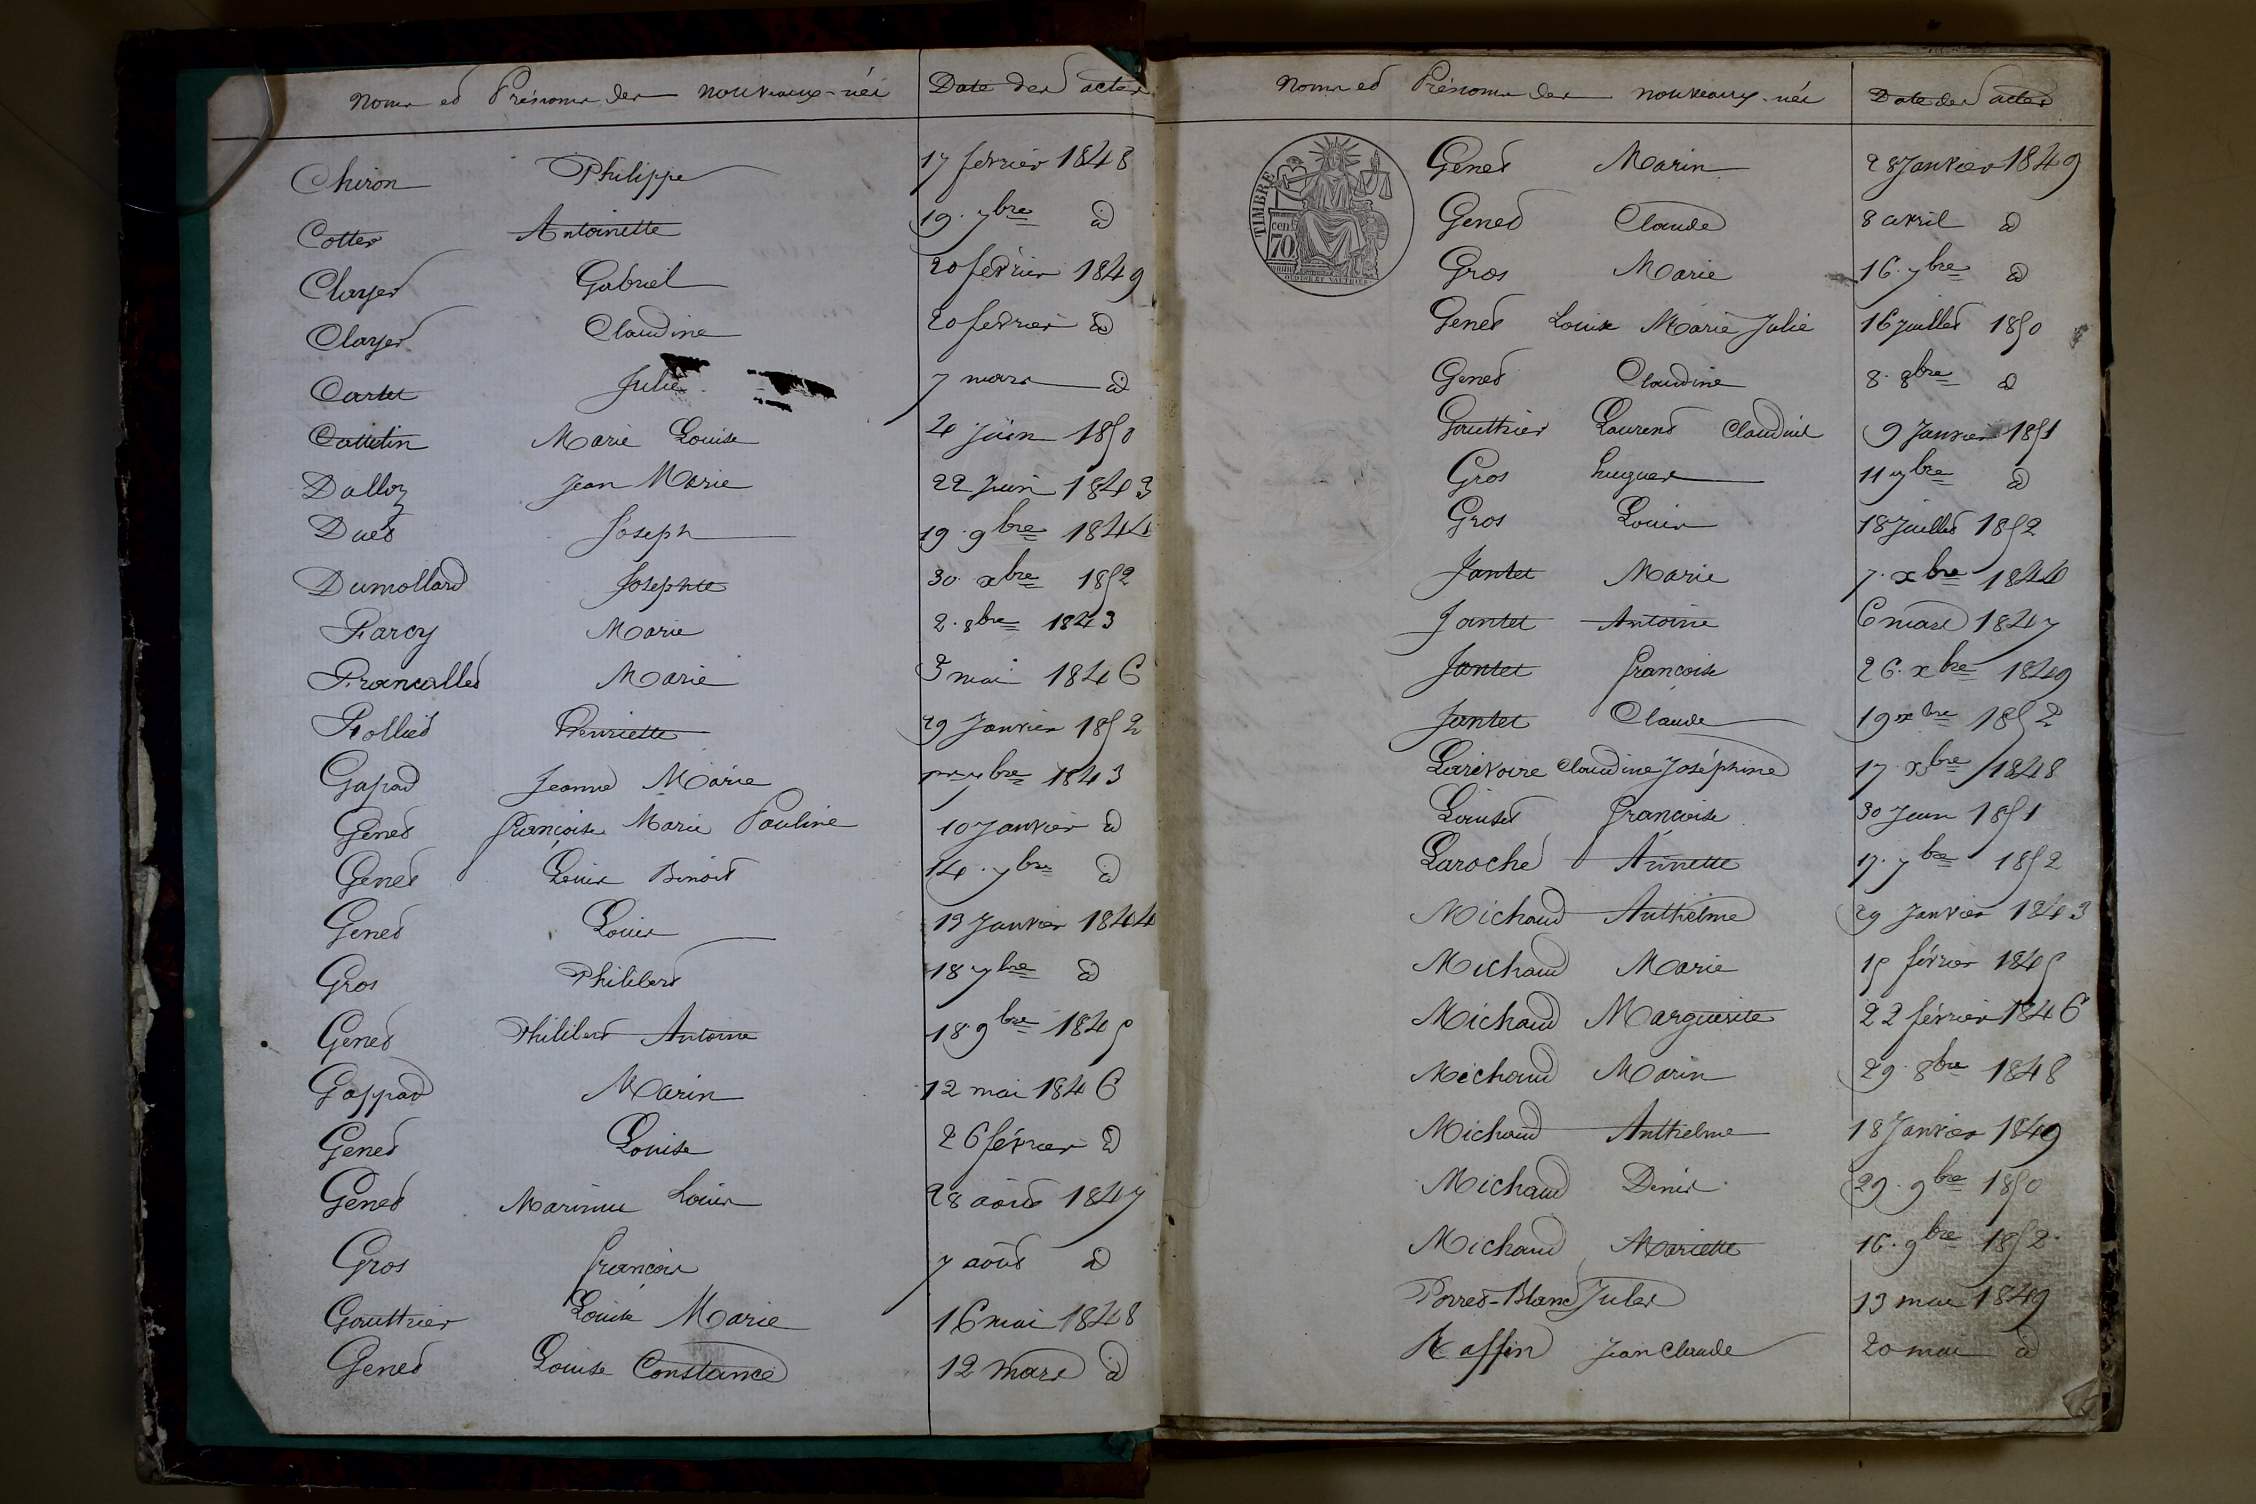 Noms et Prénoms des nouveaux-nés Date des actes
Chiron Philippe 17 février 1848
Cottet Antoinette 19. 7bre d
Clayet Gabriel 20 février 1849
Clayet Claudine 20 février d
Cartet Julie 7 mars d
Cattelin Marie Louise 4 juin 1850
Dalloz Jean Marie 22 Juin 1843
Duet Joseph 19. 9bre 1844
Dumollard Josephte 30. xbre 1852
Farcy Marie 2. 8bre 1843
Francallet Marie 3 mai 1846
Folliet Henriette 29 Janvier 1852
Gapad Jeanne Marie 7bre 1843
Genet françoise Marie Pauline 10 Janvier d
Genet Louis Benoit 14. 7bre d
Genet Louis 13 Janvier 1844
Gros Philibert 18 7bre d
Genet Philibert Antoine 18 9bre 1845
Gappad Marin 12 mai 1846
Genet Louise 26 février d
Genet Louis 28 août 1847
Gros françois 7 août d
Gouttrier Louise Marie 16 mai 1848
Genet Louise Constance 12 mars d
Noms et Prénoms des nouveaux-nés Date des actes
TIMBRE
70 cent
Genet Marin 28 Janvier 1849
Genet Claude 8 avril d
Gros Marie 16. 7bre d
Genet Louise Marie Julie 16 juillet 1850
Genet Claudine 8. 8bre d
Gouthier Laurent Claudius 9 Janvier 1851
Gros hugues 11 7bre d
Gros Louis 18 Juillet 1852
Jantet Marie 7. xbre 1844
Jantet Antoine 6 mars 1847
Jantet françoise 26. xbre 1849
Jantet Claude 19 xbre 1852
Larivoire Claudine Joséphine 17. xbre 1848
Louiset françoise 30 Juin 1851
Laroche Annette 17. 7bre 1852
Michaud Anthelme 29 Janvier 1843
Michaud Marie 15 février 1845
Michaud Marguerite 22 février 1846
Michaud Marin 29. 8bre 1848
Michaud Anthelme 18 Janvier 1849
Michaud Denis 29. 9bre 1850
Michaud Mariette 16. 9bre 1852
Porret-Blanc Jules 13 mai 1849
Raffin Jean Claude 20 mai d